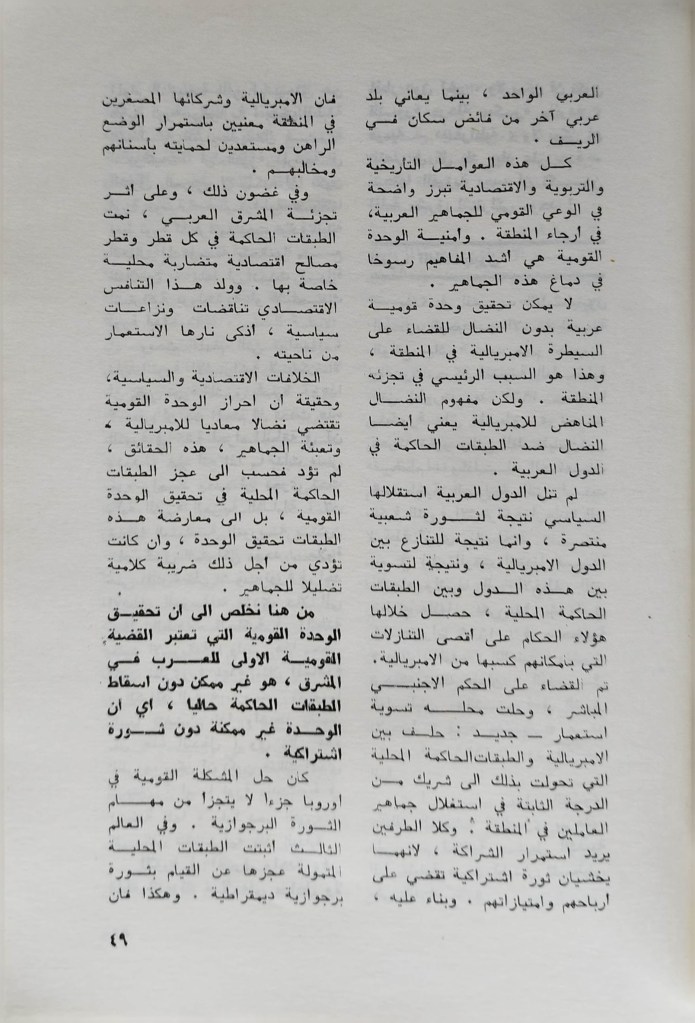 العربي الواحد ، بينما يعاني بلد
عربي آخر من فائض سكان فـي
الريف .
كـل هذه العوامـل التأريخية
والتربوية والاقتصادية تبرز واضحة
في الوعي القومي للجماهير العربية،
في أرجاء المنطقة . وأمنيـة الوحدة
القومية هي أشد المفاهيم رسوخا
في دماغ هذه الجماهير .
لا يمكن تحقيق وحدة قوميـة
عربية بدون النضال للقضاء على
السيطرة الامبريالية في المنطقة ،
وهذا هو السبب الرئيسي في تجزئة
المنطقة . ولكن مفهوم النضـال
المناهض للامبريالية يعني أيضـا
النضال ضد الطبقات الحاكمة في
الدول العربية .
لم تنل الدول العربية استقلالها
السياسي نتيجة لثـورة شعبية
منتصرة ، وانما نتيجة للتنازع بين
الدول الامبريالية ، ونتيجة لتسوية
بين هـذه الـدول وبين الطبقات
الحاكمة المحلية ، حصـل خلالها
هؤلاء الحكام على أقصى التنازلات
التي بامكانهم كسبها من الامبريالية.
تم القضاء على الحكم الاجنبـي
المباشر ، وحلت محلـه تسوية
استعمار ـ جديـد : حلـف بين
الامبريالية والطبقات الحاكمة المحلية
التي تحولت بذلك الى شريك مـن
الدرجة الثابتة في استغلال جماهير
العاملين في المنطقة . وكلا الطرفين
يريد استمرار الشراكة ، لانهمـا
يخشيان ثورة اشتراكية تقضي على
أرباحهم وامتيازاتهم . وبناء عليه ،
فان الامبريالية وشركائها المصغرين
في المنطقة معنيين باستمرار الوضع
الراهن ومستعدين لحمايته بأسنانهم
ومخالبهـم .
وفي غضون ذلك ، وعلى أثـر
تجزئـة المشرق العربـي ، نمت
الطبقات الحاكمة في كل قطر وقطر
مصالح اقتصادية متضاربة محليـة
خاصة بها . وولد هـذا التنافس
الاقتصـادي تناقضات ونزاعـات
سياسية ، أذكى نارها الاستعمار
من ناحيته .
الخلافات الاقتصادية والسياسية،
وحقيقة أن احراز الوحدة القومية
تقتضي نضالا معاديا للامبريالية ،
وتعبئة الجماهير ، هذه الحقائق ،
لم تؤد فحسب الى عجز الطبقات
الحاكمة المحلية في تحقيق الوحدة
القومية ، بل الى معارضة هـذه
الطبقات تحقيق الوحدة ، وان كانت
تؤدي من أجل ذلك ضريبة كلامية
تضليلا للجماهير .
من هنا نخلص الى ان تحقيـق
الوحدة القومية التي تعتبر القضية
القوميـة الاولى للعـرب فـي
المشرق ، هو غير ممكن دون اسقاط
الطبقات الحاكمة حاليا ، أي ان
الوحـدة غير ممكنة دون ثـورة
اشتراكية .
كان حل المشكلة القومية في
أوروبا جزءا لا يتجزأ من مهـام
الثـورة البرجوازية . وفي العالم
الثالث أثبتت الطبقات المحليـة
المتمولة عجزها عن القيام بثـورة
برجوازية ديمقراطية . وهكذا فان
٤٩